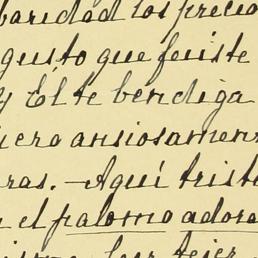 baridad los precio
gusto que fuiste
y Él te bendiga
uero ansiosamen
ras. — Aquí trist
n el palomo adora